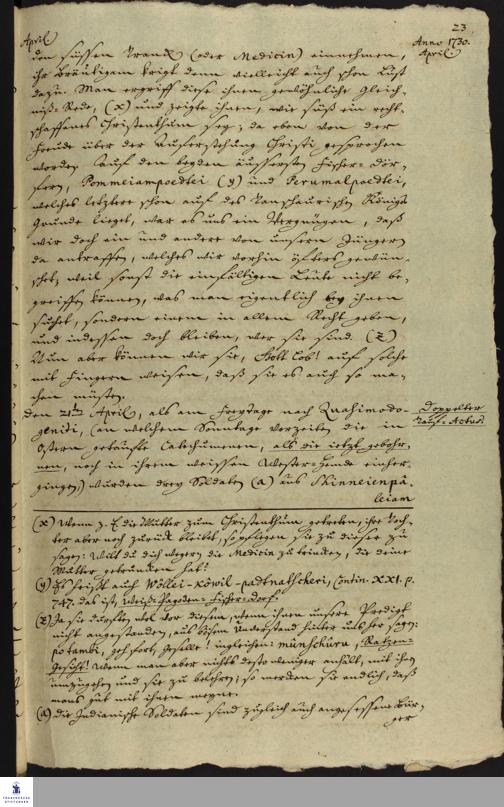 23.
April
Anno 1730.
April.
den süssen Tranck (oder Medicin) einnehmen,
ihr Bräutigam krigt denn vielleicht auch schon Lust
dazu. Man ergriff diese ihnen gewöhnliche Gleich-
niß-Rede, (x) und zeigte ihnen, wie süß ein recht-
schaffenes Christenthum sey; da eben von der
Freude über der Auferstehung Christi gesprochen
worden. Auf den beyden äussersten Fischer-Dör-
fern, Pommeiampoedtei (y) und Perumalpoedtei,
welches letztere schon auf des Tanschaurischen Königs
Grunde lieget, war es uns ein Vergnügen, daß
wir doch ein und andere von unsern Jüngern
da antraffen, welches wir vorhin öffters gewün-
schet, weil sonst die einfältigen Leute nicht be-
greiffen können, was man eigentlich bey ihnen
suchet, sondern einem in allem Recht geben,
und indessen doch bleiben, wer sie sind. (z)
Nun aber können wir sie, Gott Lob! auf solche
mit Fingern weisen, daß sie es auch so ma-
chen müsten.
Den 21ten April, als am Freytage nach Quasimodo-
geniti, (an welchem Sonntage vorzeiten die in
Ostern getauffte Catechumenen, als die ietzt gebohr-
nen, noch in ihrem weissen Wester-Hemde einher-
gingen,) wurden drey Soldaten (a) aus Thinneienpä-
leiam
Doppelter
Tauf-Actus.
(x) Wenn z. E. die Mutter zum Christenthum getreten, ihre Toch-
ter aber noch zurück bleibet, so pflegen sie zu dieser zu
sagen: Wilt du dich wegern die Medicin zu trincken, die deine
Mutter getruncken hat?
(y) Es heisst auch Wöllei-köwil-padtnathcheri, Contin. XXI. p.
747. das ist, Weiß-Pagoden-Fischer-Dorf.
(z) Da sie dürfften wol vor diesem, wenn ihnen unsere Predigt
nicht angestanden, aus bösem Unverstand hinter uns her sagen:
potambi, geh fort, Geselle! ingleichen: münschkuru, Katzen-
Gesicht! Wenn man aber nichts desto weniger anhält, mit ihnen
umzugehen und sie zu belehren, so mercken sie endlich, daß
mans gut mit ihnen meyne.
(a) Die Indianische Soldaten sind zugleich auch angesessene Bür-
ger
FRANCKESCHE
STIFTUNGEN